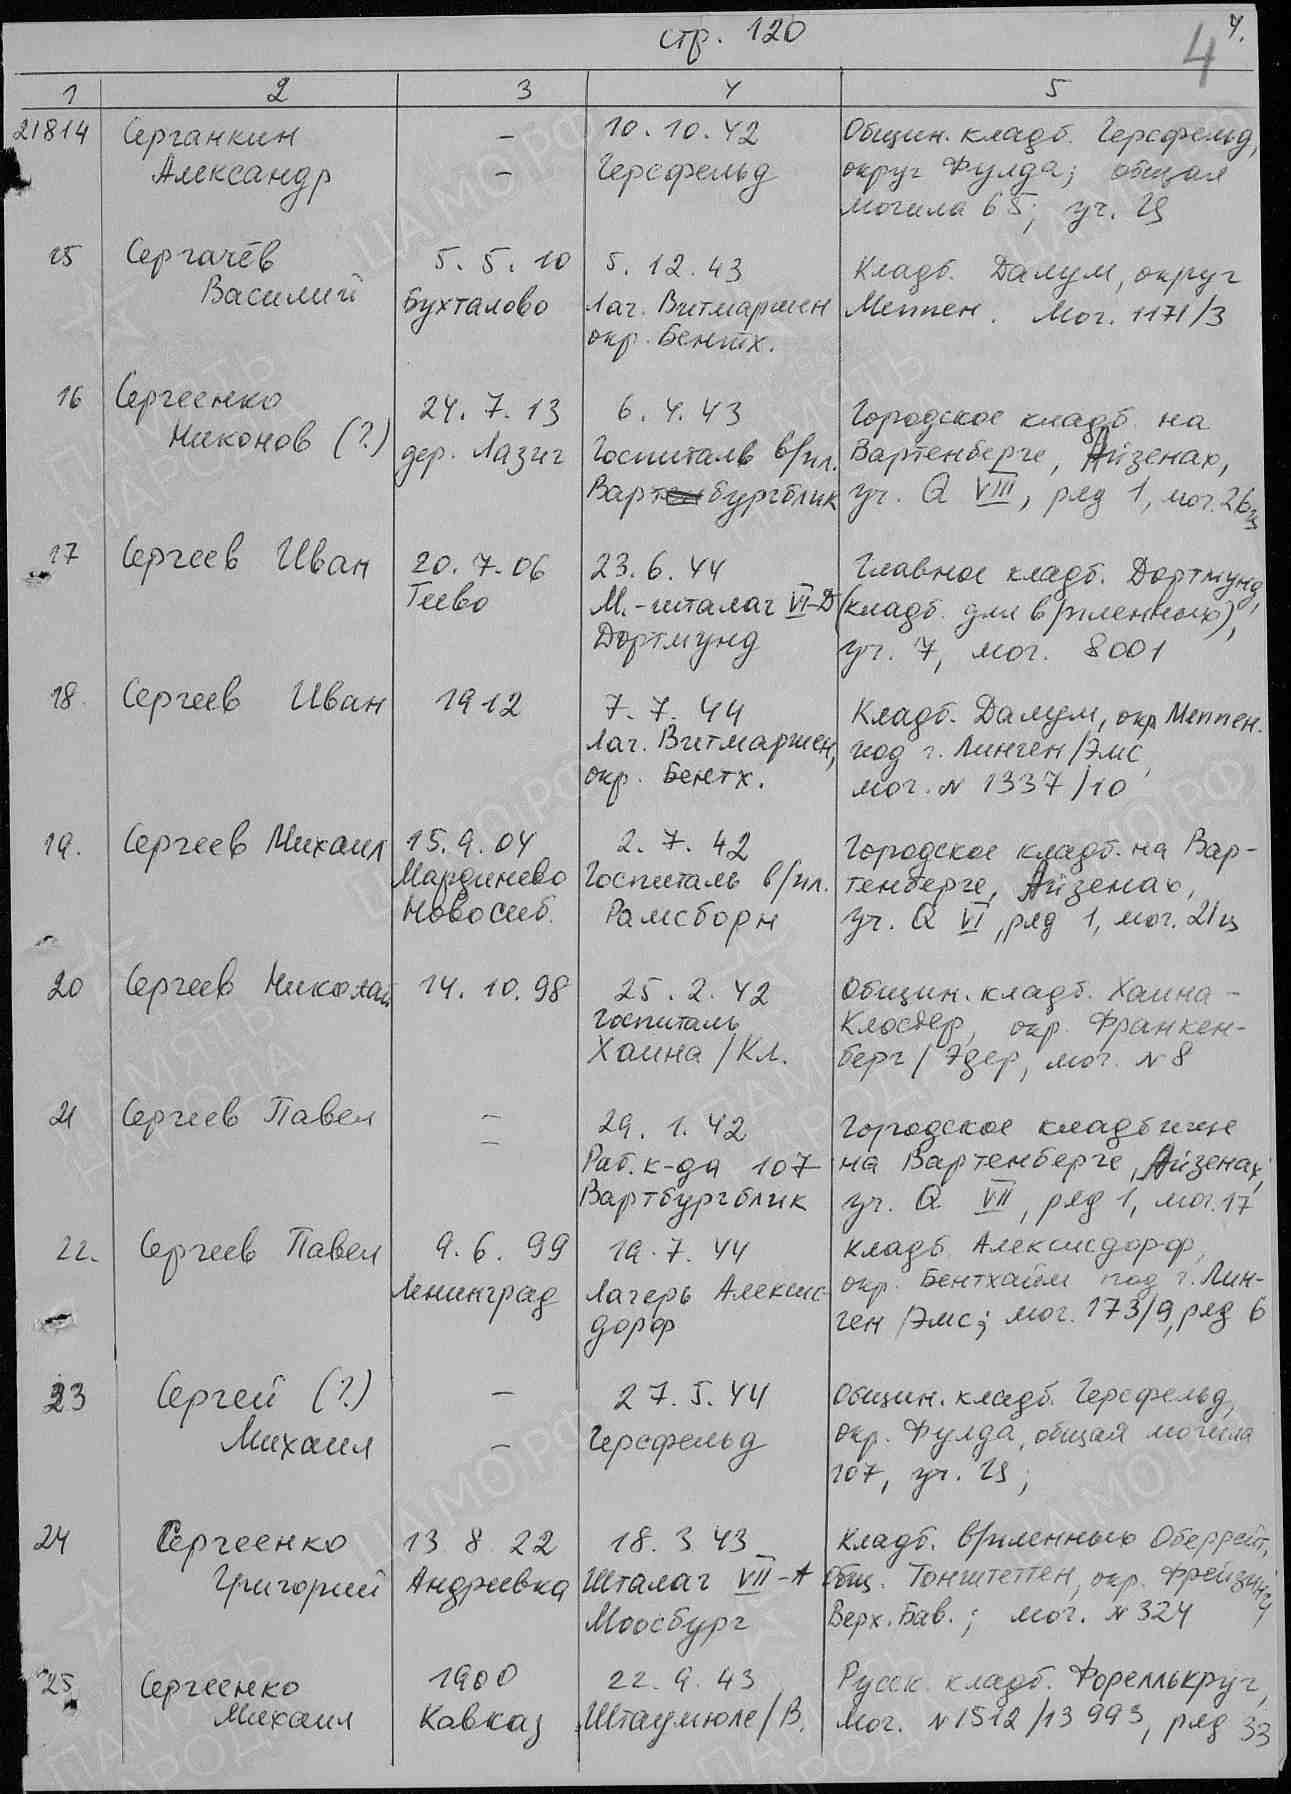 стр. 120
4 4.
1 2 3 4 5
21814 Серганкин — 10.10.42 Общин. кладб. Герсфельд,
Александр — Герсфельд округ Фулда; общая
могила 65; уч. Ц
15 Сергачёв 5.5.10 5.12.43 Кладб. Далум, округ
Василий Бухталово Лаг. Витмаршен Меппен. Мог. 1171/3
окр. Бентх.
16 Сергеенко 24.7.13 6.4.43 Городское кладб. на
Никонов (?) дер. Лазиг Госпиталь в/пл. Вартенберге, Айзенах,
Вартбургблик уч. Q VIII, ряд 1, мог. 26ц
17 Сергеев Иван 20.7.06 23.6.44 Главное кладб. Дортмунд,
Геево М.-шталаг VI-Д (кладб. для в/пленных),
Дортмунд уч. 7, мог. 8001
18. Сергеев Иван 1912 7.7.44 Кладб. Далум, окр. Меппен.
Лаг. Витмаршен, под г. Линген/Эмс,
окр. Бентх. мог. № 1337/10
19. Сергеев Михаил 15.9.04 2.7.42 Городское кладб. на Вар-
Мардинево Госпиталь в/пл. тенберге, Айзенах,
Новосиб. Рамсборн уч. Q VI, ряд 1, мог. 21ц
20 Сергеев Николай 14.10.98 25.2.42 Общин. кладб. Хаина-
Госпиталь Клостер, окр. Франкен-
Хаина/Кл. берг/Эдер, мог. № 8
21 Сергеев Павел — 29.1.42 Городское кладбище
— Раб. к-да 107 на Вартенберге, Айзенах,
Вартбургблик уч. Q VII, ряд 1, мог. 17
22. Сергеев Павел 9.6.99 19.7.44 Кладб. Алексисдорф,
Ленинград Лагерь Алексис- окр. Бентхайм под г. Лин-
дорф ген/Эмс; мог. 173/9, ряд 6
23 Сергей (?) — 27.5.44 Общин. кладб. Герсфельд,
Михаил — Герсфельд окр. Фулда, общая могила
107, уч. Ц;
24 Сергеенко 13 8 22 18.3 43 Кладб. в/пленных Оберрейт,
Григорий Андреевка Шталаг VII-А Общ. Тонштеттен, окр. Фрейзинг,
Моосбург Верх. Бав.; мог. № 324
25 Сергеенко 1900 22.9.43 Русск. кладб. Фореллькруг,
Михаил Кавказ Штаумюле/В. Мог. № 1512/13 993, ряд 33
ЦАМО.РФ
ПАМЯТЬ
НАРОДА